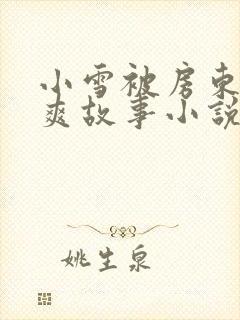 小雪被房东
爽故事小説
姚生泉